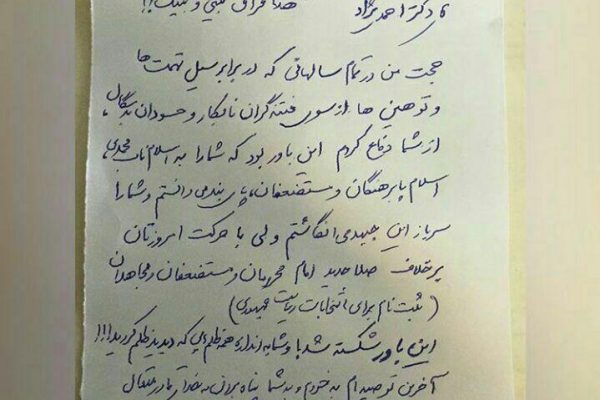 آقای دکتر احمدی نژاد هذا فراق بینی و بینک!!
حجت من در تمام سالهائی که در برابر سیل تهمت ها
و توهین ها از سوی فتنه گران نابکار و حسودان بدسگال،
از شما دفاع کردم این باور بود که شما را به اسلام ناب محمدی،
اسلام پابرهنگان و مستضعفان، پای بند می دانستم و شما را
سرباز این جبهه می انگاشتم ولی با حرکت امروزتان
برخلاف صلاحدید امام محرومان و مستضعفان و مجاهدان
(ثبت نام برای انتخابات ریاست جمهوری)
این باور شکسته شد! و شما به اندازه همه ظلم هایی که دیدید ظلم کردید!!!
آخرین توصیه ام به خودم و به شما پناه بردن به خدای قادر متعال